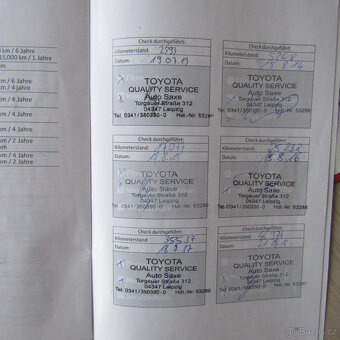 km / 6 Jahre
15.000 km / 1 Jahre
km
km / 6 Jahre
km / 4 Jahre
km / 4 Jahre
km / 4 Jahre
km / 2 Jahre
km / 4 Jahre
km / 2 Jahre
Check durchgeführt:
Kilometerstand:
Datum:
TOYOTA
QUALITY SERVICE
Auto Saxe
Torgauer Straße 312
04347 Leipzig
Tel. 0341/350350-0 Hdl.-Nr. 53286
Check durchgeführt:
Kilometerstand:
Datum: 15.8.14
TOYOTA
QUALITY SERVICE
Auto Saxe
Torgauer Straße 312
04347 Leipzig
Tel. 0341/350350-0 Hdl.-Nr. 53286
Check durchgeführt:
Kilometerstand:
Datum: 18.8.15
TOYOTA
QUALITY SERVICE
Auto Saxe
Torgauer Straße 312
04347 Leipzig
Tel. 0341/350350-0 Hdl.-Nr. 53286
Check durchgeführt:
Kilometerstand:
Datum: 18.8.16
TOYOTA
QUALITY SERVICE
Auto Saxe
Torgauer Straße 312
04347 Leipzig
Tel. 0341/350350-0 Hdl.-Nr. 53286
Check durchgeführt:
Kilometerstand: 35537
Datum: 18.9.17
TOYOTA
QUALITY SERVICE
Auto Saxe
Torgauer Straße 312
04347 Leipzig
Tel. 0341/350350-0 Hdl.-Nr. 53286
Check durchgeführt:
Kilometerstand:
Datum:
TOYOTA
QUALITY SERVICE
Auto Saxe
Torgauer Straße 312
04347 Leipzig
Tel. 0341/350350-0 Hdl.-Nr. 53286